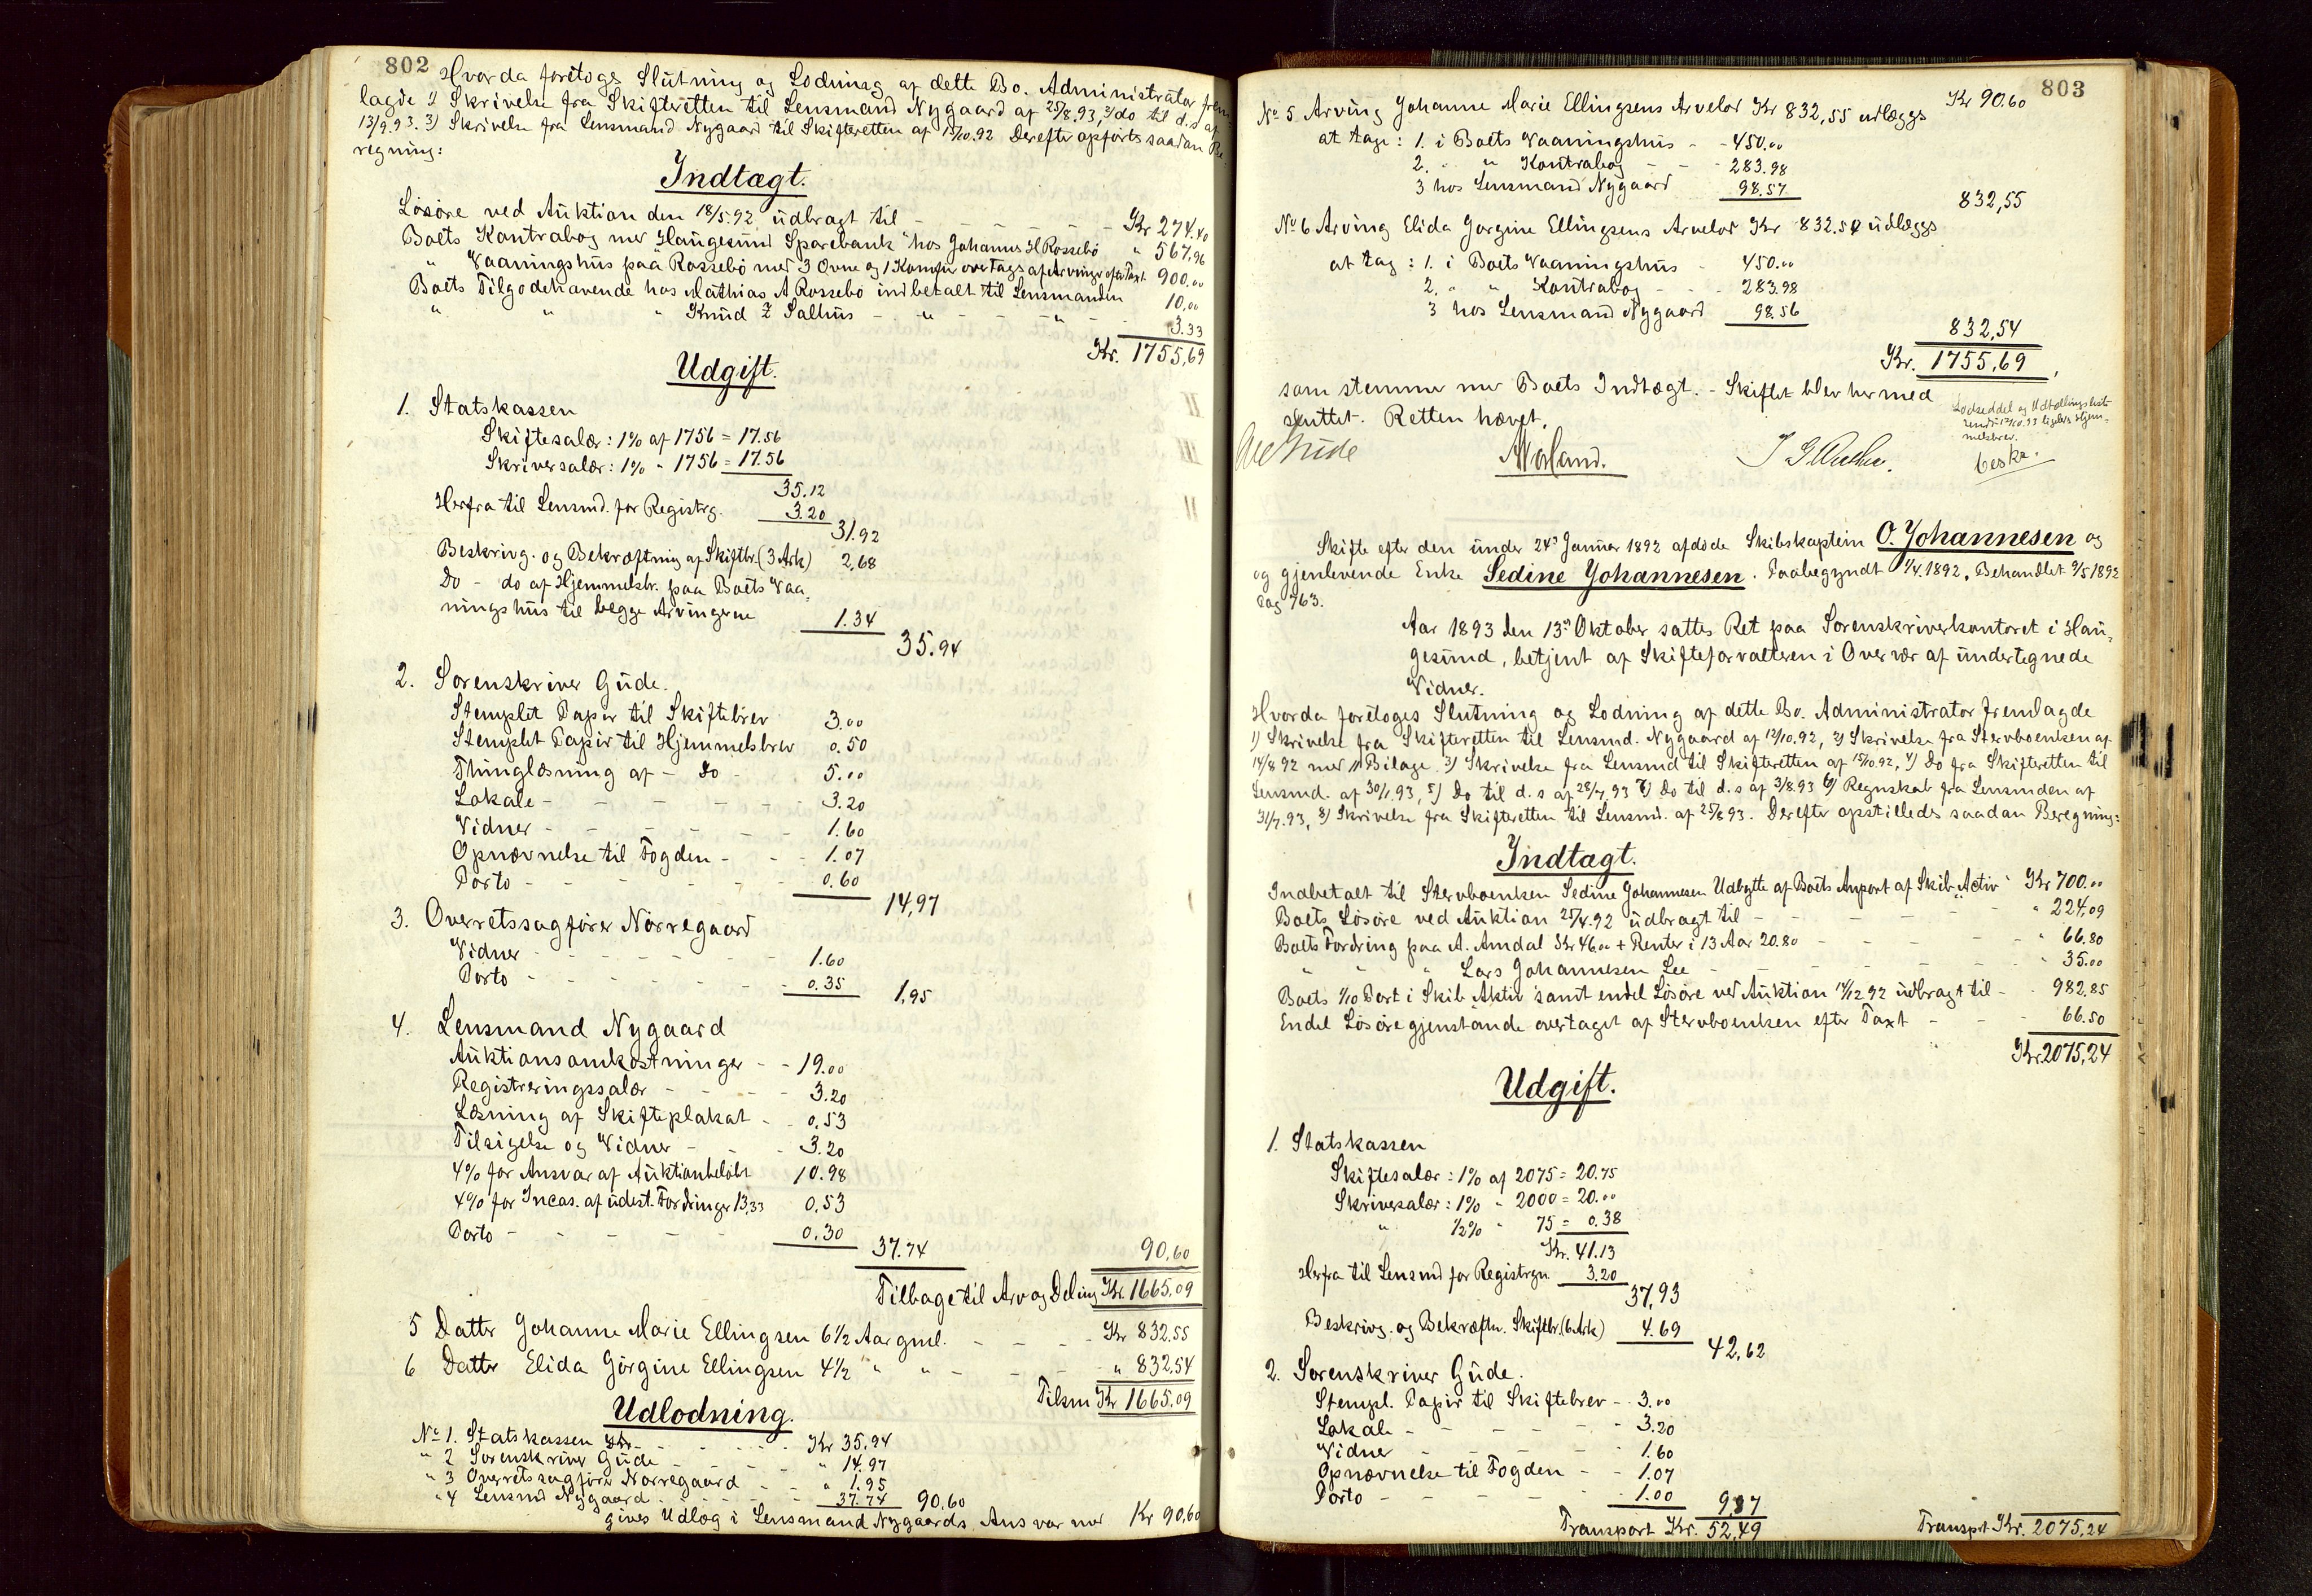 802
Hvorda foretoges Slutning og Lodning af dette Bo. Administrator frem
lagde 1) Skrivelse fra Skifteretten til Lensmand Nygaard af 25/8.93, 2) do til d.s af
13/9.93. 3) Skrivelse fra Lensmand Nygaard til Skifteretten af 15/10.92 Derefter opførtes saadan Be
regning:
Indtægt.
Løsøre ved Auktion den 18/5.92 udbragt til - - - - Kr 274.40
Boets Kontrabog med "Haugesund Sparebank" hos Johannes H Rossebø " 567,96
" Vaaningshus paa Rossebø med 3 Ovne og 1 Komfur overtages af Arvinger efter Taxt 900.00
Boets Tilgodehavende hos Mathias A Rossebø indbetalt til Lensmanden 10,00
" " " Knud Z Salhus - " - - " - 3.33
Kr. 1755,69
Udgift.
1. Statskassen
Skiftesalær: 1% af 1756 = 17.56
Skriversalær: 1% " 1756 = 17.56
35.12
Herfra til Lensmd. for Registrg. 3.20
31.92
Beskrivg. og Bekræftning af Skiftbr. (3 Ark) 2,68
Do - do af Hjemmelsbr. paa Boets Vaa-
ningshus til begge Arvingerne 1.34
35.94
2. Sorenskriver Gude.
Stemplet Papir til Skiftebrev 3.00
Stemplet Papir til Hjemmelsbrev 0.50
Thinglæsning af - do - 5.00
Lokale - - - - - - 3.20
Vidner - - - - - - 1.60
Opnævnelse til Fogden - - - 1.07
Porto - - - - - - 0.60
14,97
3. Overretssagfører Nørregaard
Vidner - - - - - - 1.60
Porto - - - - - - 0.35
1,95
4. Lensmand Nygaard
Auktionsomkostninger - - 19.00
Registreringssalær - - - - 3.20
Læsning af Skifteplakat - - 0.53
Tilsigelse og Vidner - - - 3.20
4% for Ansvar af Auktionbeløbet 10.98
4% for Incas. af udest. Fordringer 13,33 0.53
Porto - - - - - - 0.30
37.74 90,60
Tilbage til Arv og Deling Kr. 1665,09
5 Datter Johanne Marie Ellingsen 6 1/2 Aar gml. - - - Kr 832.55
6 Datter Elida Görgine Ellingsen 4 1/2 " " - - - " 832.54
Tilsm Kr 1665.09
Udlodning.
No 1. Statskassen - - - - - Kr 35.94
" 2 Sorenskriver Gude - - - " 14.97
" 3 Overretssagfører Nørregaard - " 1.95
" 4 Lensmd Nygaard - - - - 37.74 90.60
gives Udlæg i Lensmand Nygaards Ansvar med Kr 90,60
803
Kr 90.60
No 5 Arving Johanne Marie Ellingsens Arvelod Kr 832,55 udlægges
at tage: 1. i Boets Vaaningshus - - 450.00
2. " " Kontrabog - - - 283.98
3 hos Lensmand Nygaard 98.57
832,55
No 6 Arving Elida Gørgine Ellingsens Arvelod Kr 832.54 udlægges
at tag: 1. i Boets Vaaningshus - 450.00
2. " " Kontrabog - - - 283.98
3 hos Lensmand Nygaard 98.56
832,54
Kr. 1755,69
som stemmer med Boets Indtægt. - Skiftet blev hermed
sluttet. Retten hævet.
Lodseddel og Udtællingslist
sendt 13/10.93 ligeledes Hjem-
melsbrev.
Gude
beskr.
Skifte efter den under 24de Januar 1892 afdøde Skibskaptein O. Johannesen og
og gjenlevende Enke Sedine Johannesen. Paabegyndt 1/4.1892. Behandlet 9/5 1892
Pag 763.
Aar 1893 den 13de Oktober sattes Ret paa Sorenskriverkontoret i Hau-
gesund, betjent af Skifteforvalteren i Overvær af undertegnede
Vidner.
Hvorda foretoges Slutning og Lodning af dette Bo. Administrator fremlagde
1) Skrivelse fra Skifteretten til Lensmd. Nygaard af 12/10.92, 2) Skrivelse fra Stervboenken af
14/8 92 med 11 Bilage. 3) Skrivelse fra Lensmd til Skifteretten af 15/10.92, 4) Do fra Skifteretten til
Lensmd. af 30/1.93, 5) Do til d. s af 28/7.93 7) Do til d. s af 3/8.93 6) Regnskab fra Lensmden af
31/7.93, 8) Skrivelse fra Skifteretten til Lensmd. af 25/8 93. Derefter opstilledes saadan Beregning:
Indtægt.
Indbetalt til Stervboenken Sedine Johannesen Udbytte af Boets Anpart af Skib "Activ" Kr 700.00
Boets Løsøre ved Auktion 25/4.92 udbragt til - - - - " 224,09
Boets Fordring paa A. Amdal Kr 46.00 + Renter i 13 Aar 20.80 - - - - " 66.80
" " " Lars Johannesen Lee - - - - - " 35.00
Boets 1/10 Part i Skib Aktiv samt endel Løsøre ved Auktion 14/12 92 udbragt til - " 982,85
Endel Løsøregjenstande overtaget af Stervboenken efter Taxt - - - 66.50
Kr 2075,24
Udgift.
1. Statskassen
Skiftesalær: 1% af 2075 = 20.75
Skriversalær: 1% " 2000 = 20.00
" 1/2% " 75 = 0.38
Kr. 41.13
Herfra til Lensmd for Registrgn. 3.20
37,93
Beskrivg. og Bekræftn. Skiftbr. (6 Ark) 4.69
42,62
2. Sorenskriver Gude.
Stempl. Papir til Skiftebrev - - 3.00
Lokale - - - - - - 3.20
Vidner - - - - - 1.60
Opnævnelse til Fogden - - 1.07
Porto - - - - - - 1.00
9,87
Transport Kr. 52,49 Transpt Kr. 2075,24